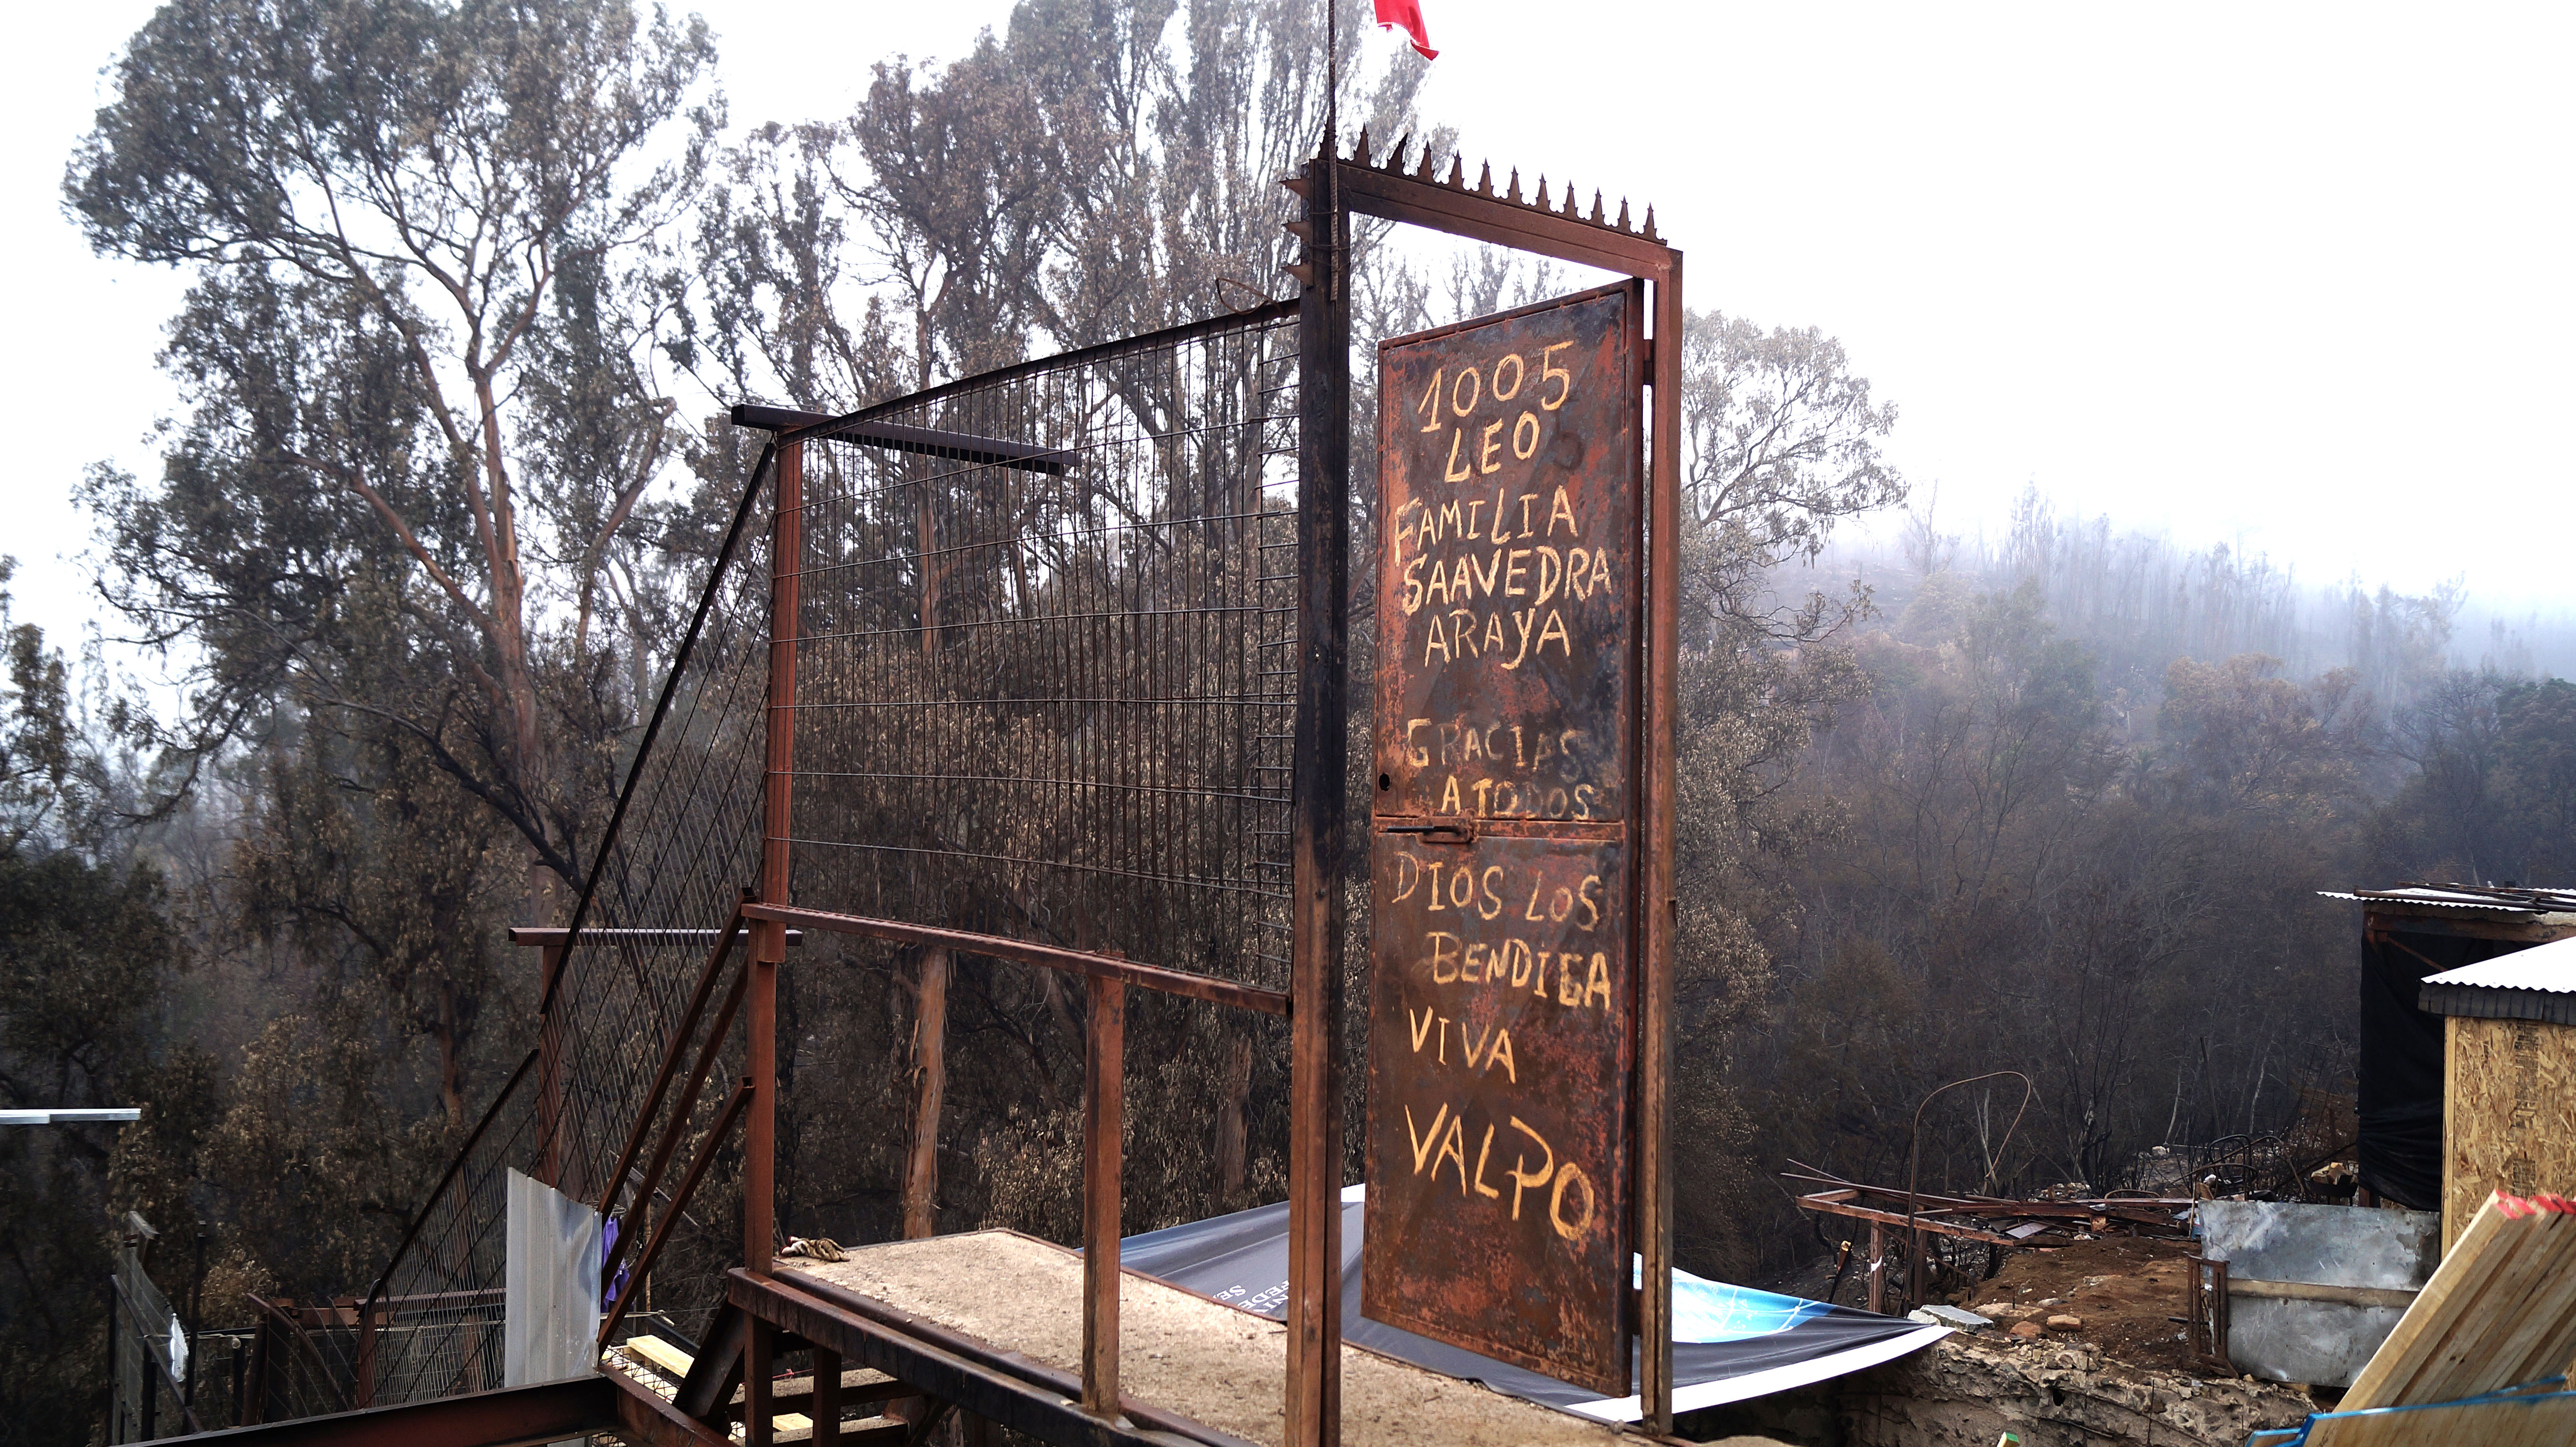 1005
LEO
FAMILIA
SAAVEDRA
ARAYA
GRACIAS
A TODOS
DIOS LOS
BENDIGA
VIVA
VALPO